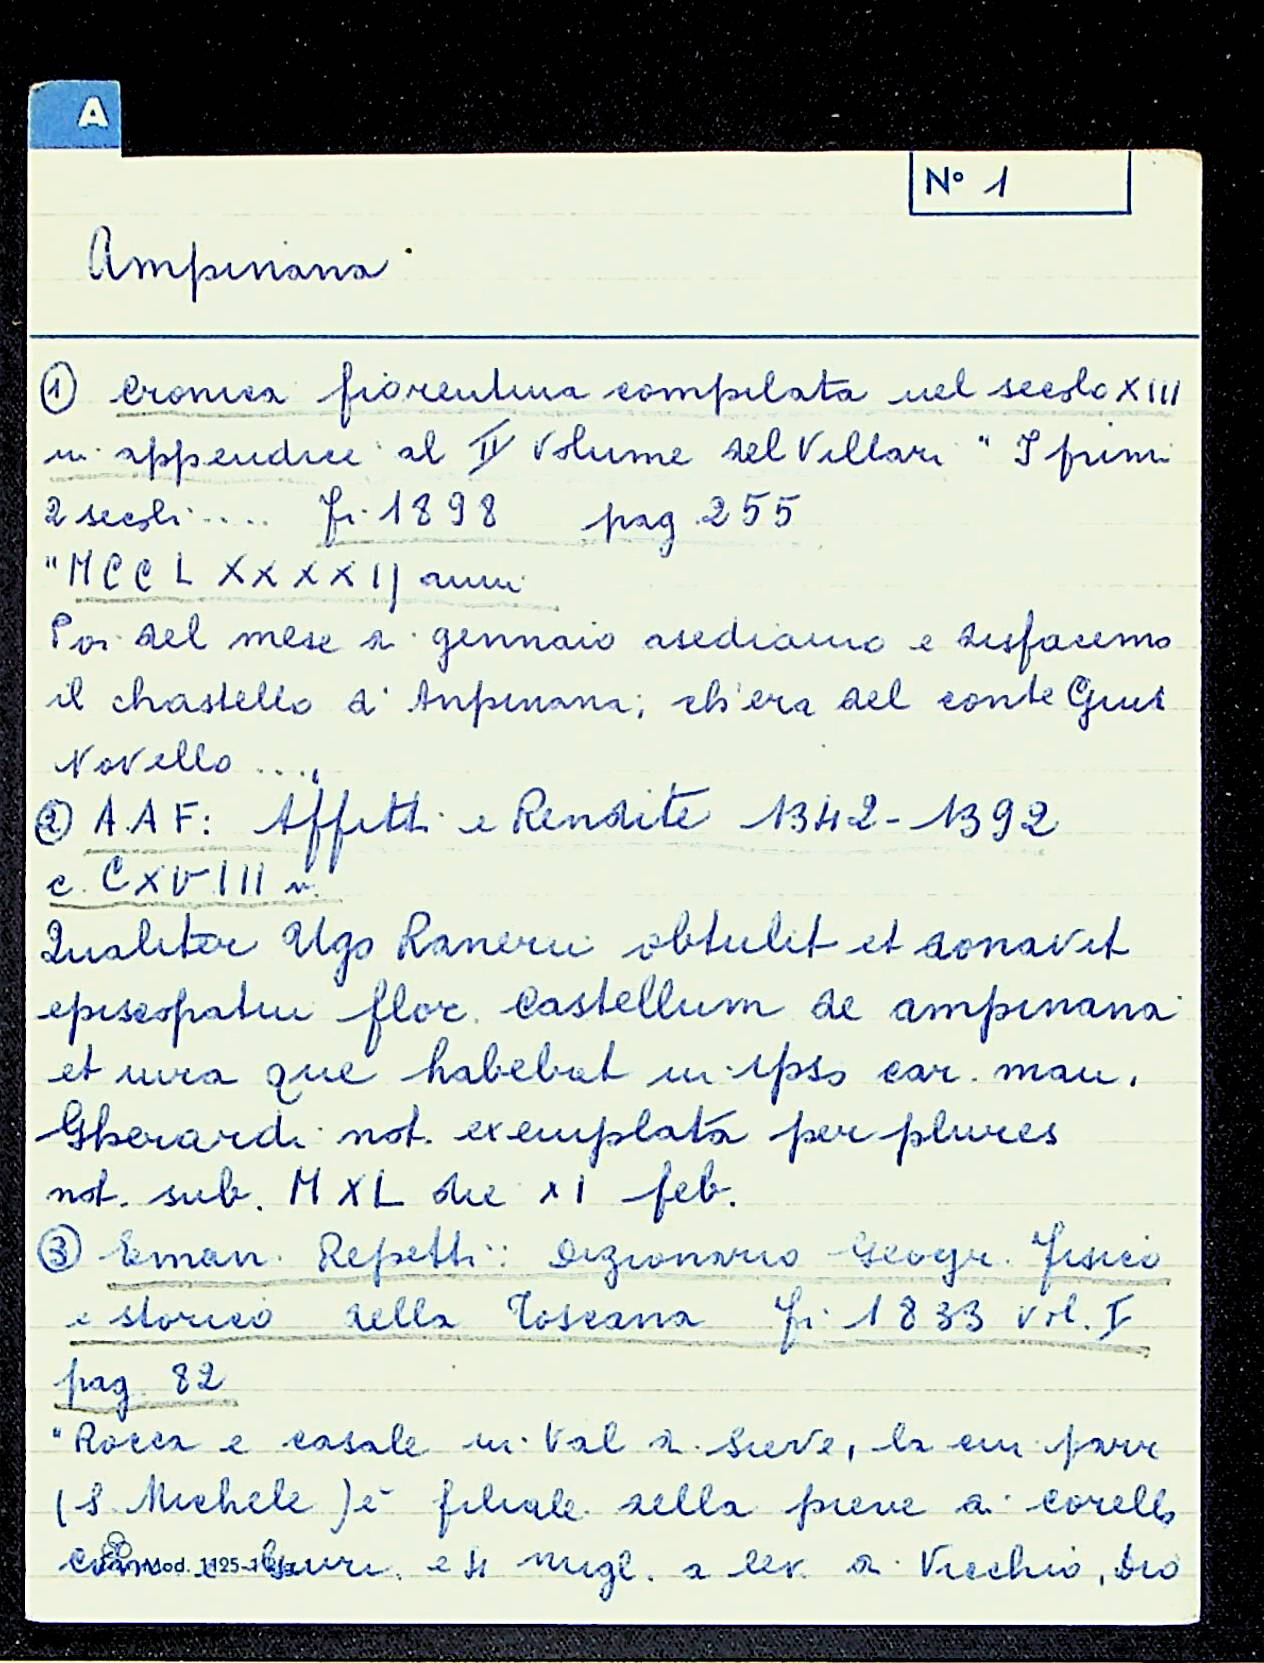 A
N° 1
Ampinana
① Cronica fiorentina compilata nel secolo XIII
in appendice al II volume del Villari " I primi
2 secoli .... Fi. 1898 pag. 255
"MCCLXXXXII anni
Poi del mese di gennaio asediamo e disfacemo
il chastello d'Anpinana; ch'era del conte Guid
Novello ...."
② A.A F: Affitti e Rendite 1342-1392
c. CXVIII v.
Qualiter Ugo Ranerii obtulit et donavit
episcopatui flor. Castellum de ampinana
et iura que habebat in ipso car. man.
Gherardi not. exemplata per plures
not. sub. MXL die XI feb.
③ Eman. Repetti: Dizionario Geogr. Fisico
e storico della Toscana Fi 1833 vol. I
pag. 82
"Rocca e casale in Val di Sieve, la cui parr
(S. Michele) è filiale della pieve di Corella
Com. e e 4 migl. a lev. di Vicchio, Dio
Mod. 1125-1